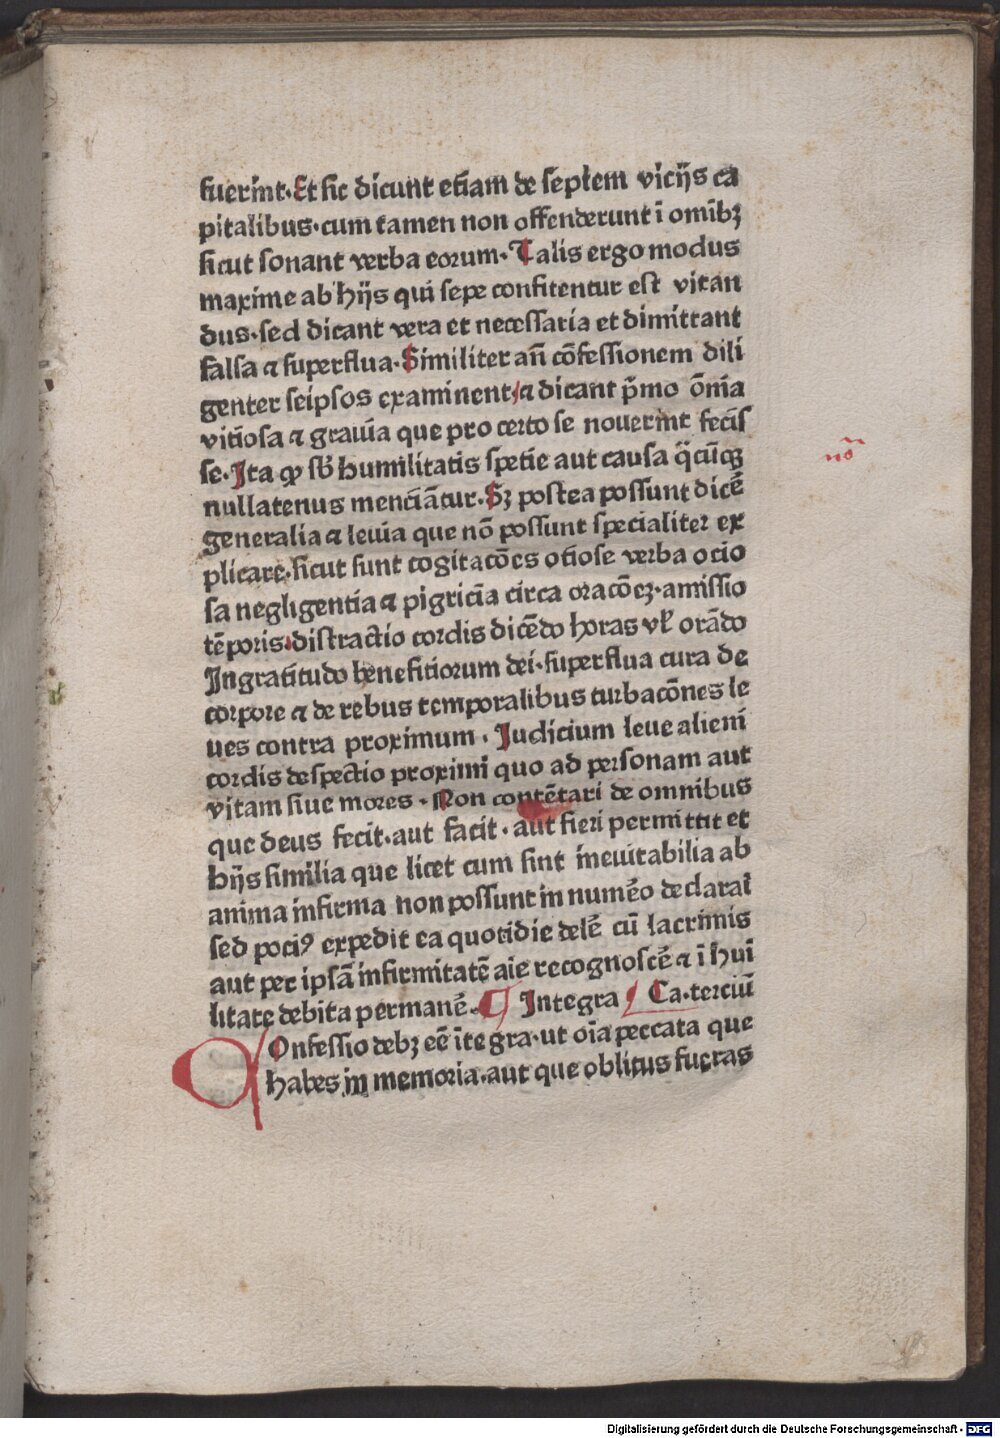 fuerint. Et sic dicunt etiam de septem vicijs ca
pitalibus. cum tamen non offenderunt ī omībꝫ
sicut sonant verba eorum. Talis ergo modus
maxime ab hijs qui sepe confitentur est vitan
dus. sed dicant vera et necessaria et dimittant
falsa ⁊ superflua. Similiter an̄ cōfessionem dili
genter seipsos examinent/ ⁊ dicant p̄mo om̄ia
vitiosa ⁊ grauia que pro certo se nouerint fecis
se. Ita ꝙ sb̄ humilitatis spetie aut causa q̄cūqꝫ
nullatenus menciātur. Sꝫ postea possunt dicē
generalia ⁊ leuia que nō possunt specialiter ex
plicare. sicut sunt cogitacōes otiose verba ocio
sa negligentia ⁊ pigricia circa oracōeꝫ. amissio
tēporis. distractio cordis dicēdo horas vł orādo
Ingratitudo benefitiorum dei. superflua cura de
corpore ⁊ de rebus temporalibus turbacōnes le
ues contra proximum. Judicium leue alieni
cordis despectio proximi quo ad personam aut
vitam siue mores. Non contētari de omnibus
que deus fecit. aut facit. aut fieri permittit et
hijs similia que licet cum sint ineuitabilia ab
anima infirma non possunt in numēo declarai
sed pociꝰ expedit ea quotidie delē cū lacrimis
aut per ipsā infirmitatē aīe recognoscē ⁊ ī hui
litate debita permanē. Integra Ca. terciū
Onfessio debꝫ eē ītegra. ut oīa peccata que
habes in memoria. aut que oblitus fueras
nō
Digitalisierung gefördert durch die Deutsche Forschungsgemeinschaft - DFG